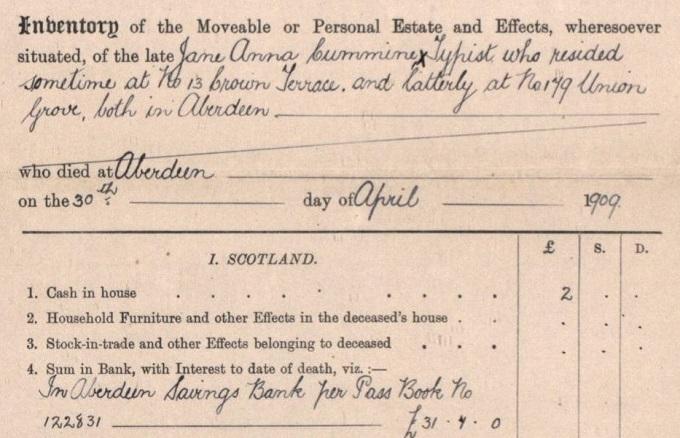 Inventory of the Moveable or Personal Estate and Effects, wheresoever
situated, of the late Jane Anna Cummine Typist, who resided
sometime at No 13 Crown Terrace, and latterly at No 179 Union
Grove, both in Aberdeen
who died at Aberdeen
on the 30th day of April 1909.
I. SCOTLAND. £ S. D.
1. Cash in house . . . . . . . . 2 . .
2. Household Furniture and other Effects in the deceased's house . . . .
3. Stock-in-trade and other Effects belonging to deceased . . . . . .
4. Sum in Bank, with Interest to date of death, viz.:—
In Aberdeen Savings Bank per Pass Book No
122831 £31 . 4 . 0